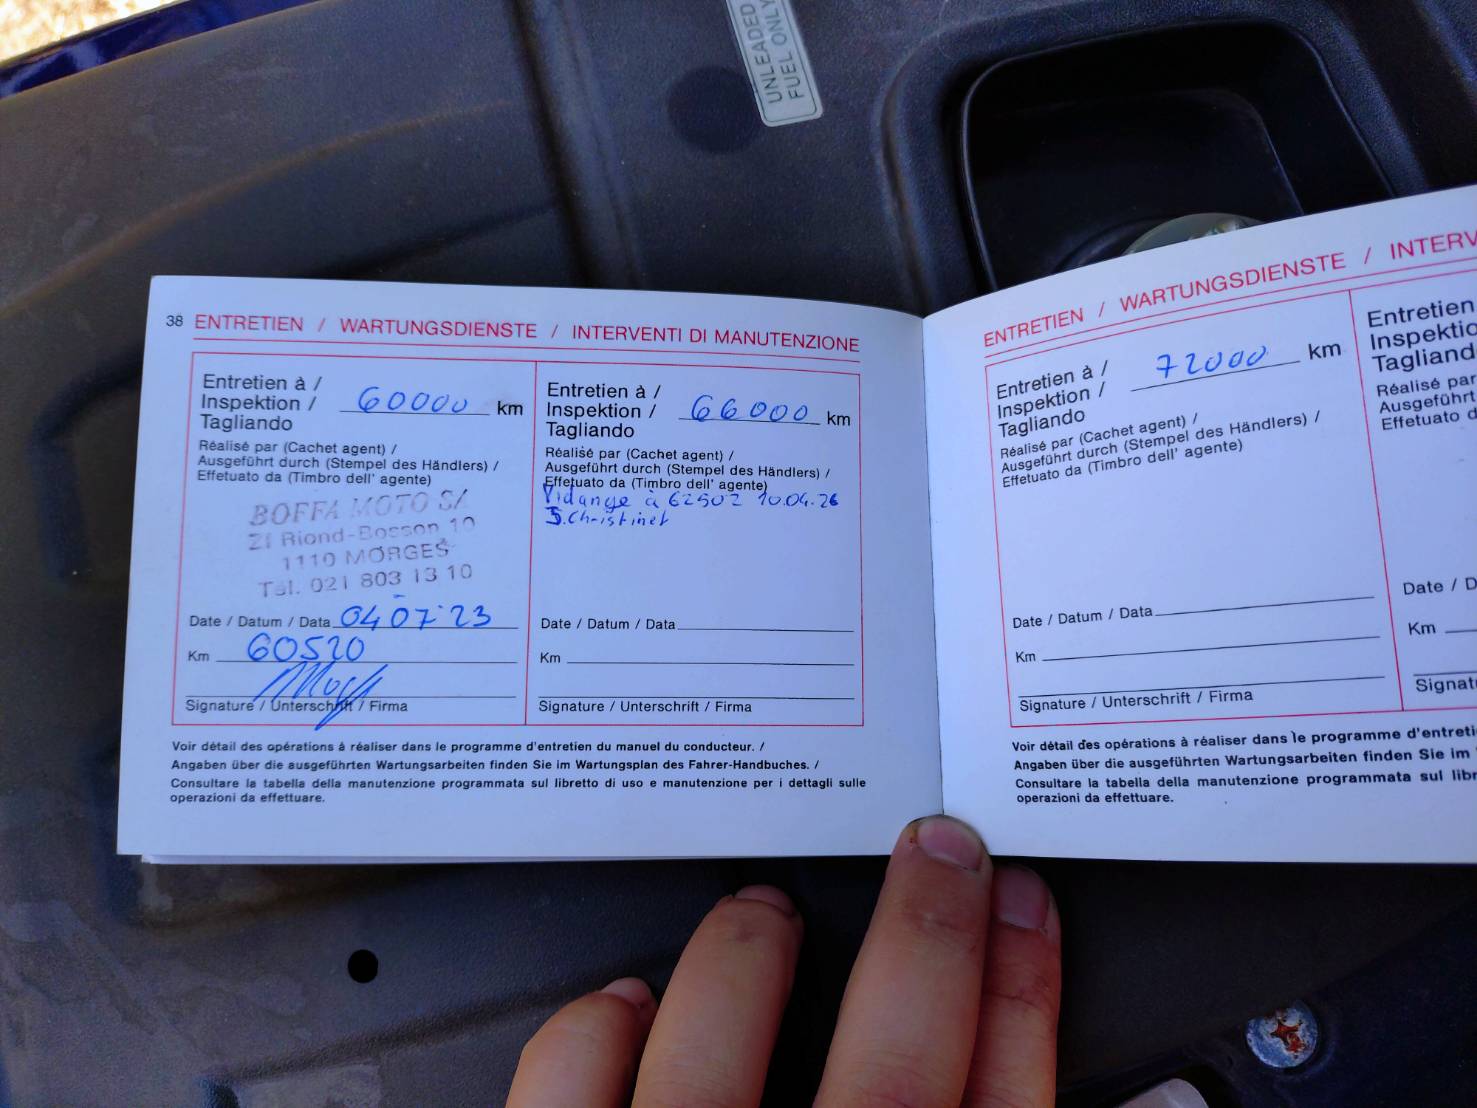 UNLEADED
FUEL ONLY
38 ENTRETIEN / WARTUNGSDIENSTE / INTERVENTI DI MANUTENZIONE
Entretien à /
Inspektion / 60000 km
Tagliando
Réalisé par (Cachet agent) /
Ausgeführt durch (Stempel des Händlers) /
Effetuato da (Timbro dell' agente)
BOFFA MOTO SA
ZI Riond-Bosson 10
1110 MORGES
Tél. 021 803 13 10
Date / Datum / Data 04 07 23
Km 60520
Signature / Unterschrift / Firma
Entretien à /
Inspektion / 66000 km
Tagliando
Réalisé par (Cachet agent) /
Ausgeführt durch (Stempel des Händlers) /
Effetuato da (Timbro dell' agente)
Vidange à 62502 10.04.26
S.Christinet
Date / Datum / Data
Km
Signature / Unterschrift / Firma
Voir détail des opérations à réaliser dans le programme d'entretien du manuel du conducteur. /
Angaben über die ausgeführten Wartungsarbeiten finden Sie im Wartungsplan des Fahrer-Handbuches. /
Consultare la tabella della manutenzione programmata sul libretto di uso e manutenzione per i dettagli sulle
operazioni da effettuare.
ENTRETIEN / WARTUNGSDIENSTE / INTERV
Entretien à /
Inspektion / 72000 km
Tagliando
Réalisé par (Cachet agent) /
Ausgeführt durch (Stempel des Händlers) /
Effetuato da (Timbro dell' agente)
Date / Datum / Data
Km
Signature / Unterschrift / Firma
Entretien
Inspektio
Tagliand
Réalisé par
Ausgeführt
Effetuato d
Date / D
Km
Signat
Voir détail des opérations à réaliser dans le programme d'entreti
Angaben über die ausgeführten Wartungsarbeiten finden Sie im
Consultare la tabella della manutenzione programmata sul libr
operazioni da effettuare.